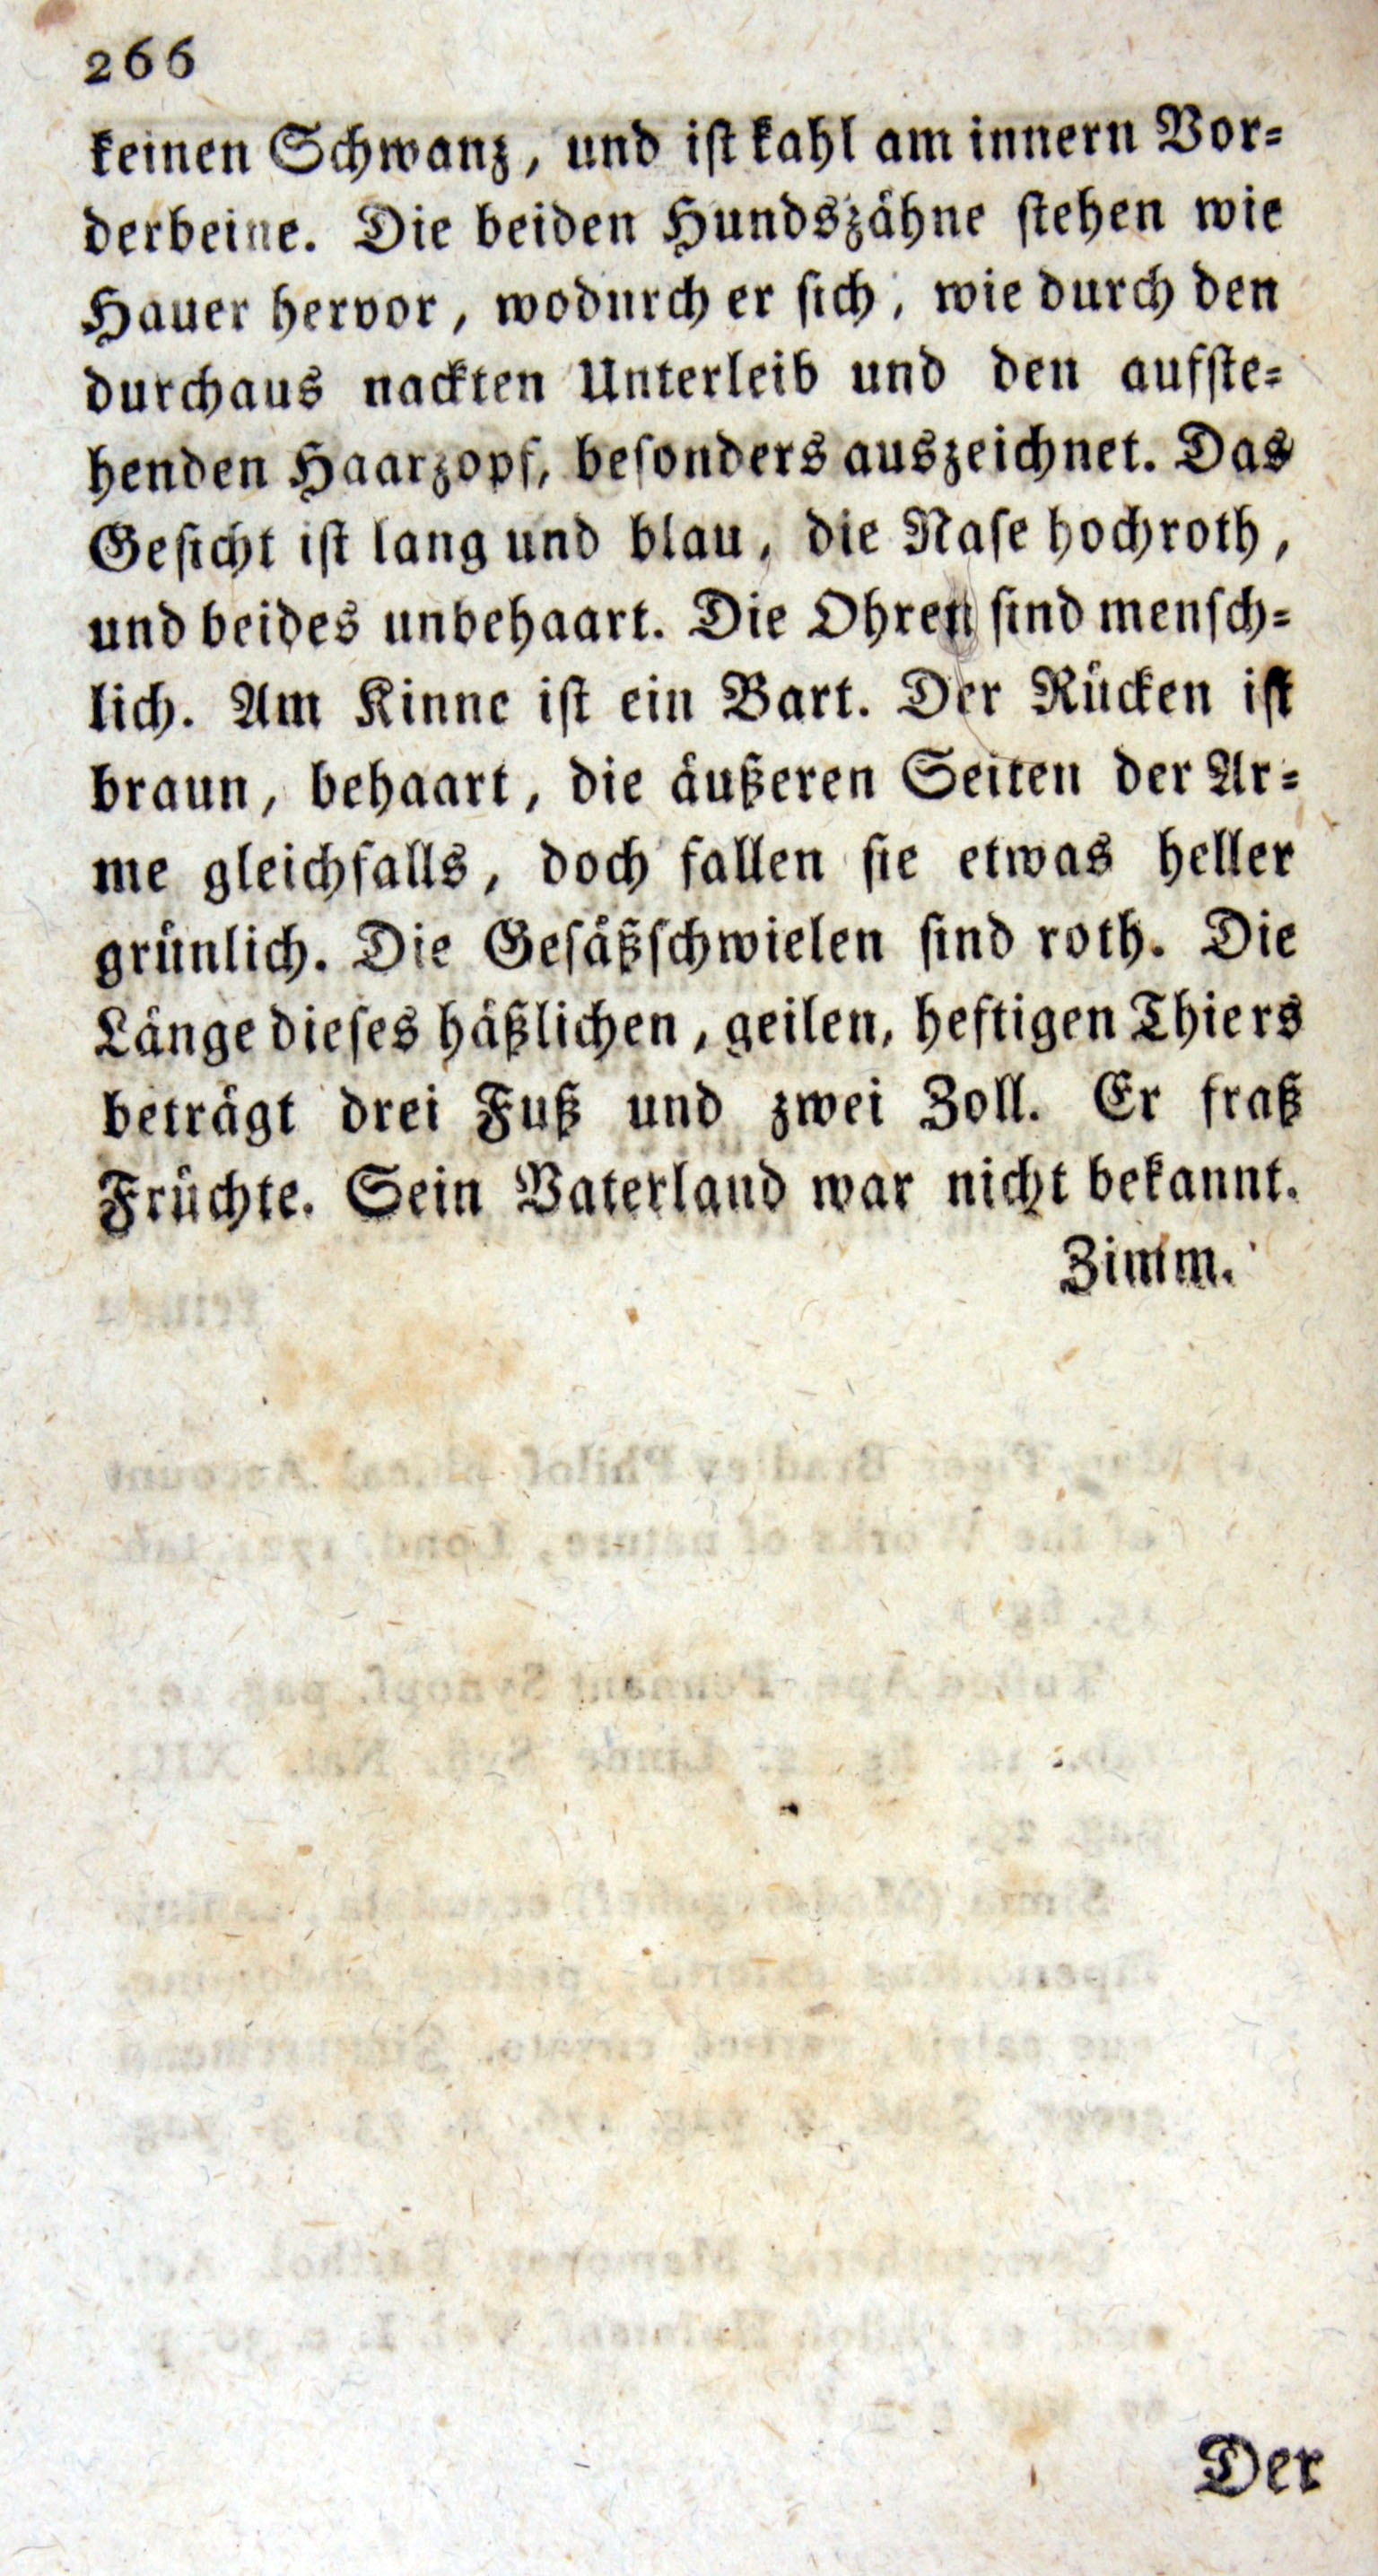 266
keinen Schwanz, und ist kahl am innern Vor=
derbeine. Die beiden Hundszähne stehen wie
Hauer hervor, wodurch er sich, wie durch den
durchaus nackten Unterleib und den aufste=
henden Haarzopf, besonders auszeichnet. Das
Gesicht ist lang und blau, die Nase hochroth,
und beides unbehaart. Die Ohren sind mensch=
lich. Am Kinne ist ein Bart. Der Rücken ist
braun, behaart, die äußeren Seiten der Ar=
me gleichfalls, doch fallen sie etwas heller
grünlich. Die Gesäßschwielen sind roth. Die
Länge dieses häßlichen, geilen, heftigen Thiers
beträgt drei Fuß und zwei Zoll. Er fraß
Früchte. Sein Vaterland war nicht bekannt.
Zimm.
Der